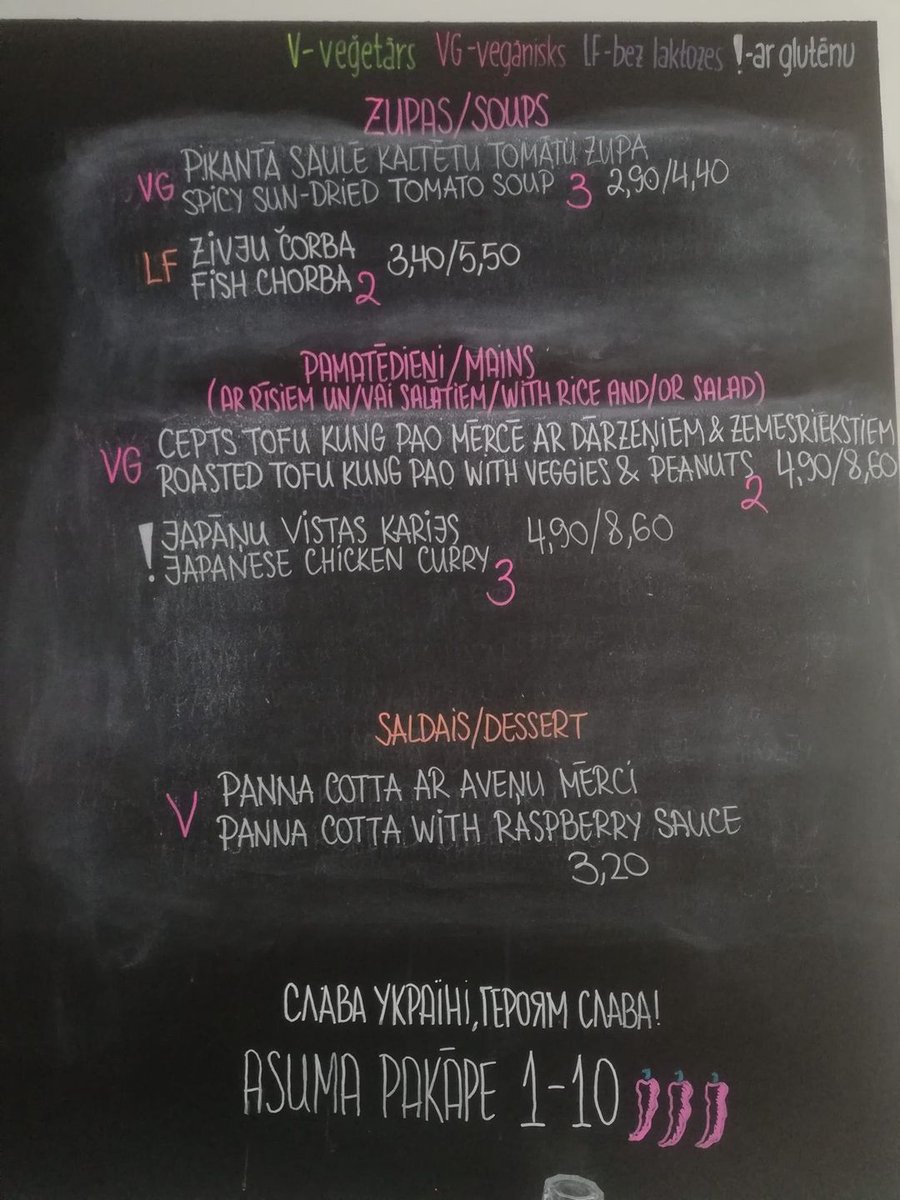 V-veģetārs VG-vegānisks LF-bez laktozes !-ar glutēnu
ZUPAS/SOUPS
VG PIKANTĀ SAULĒ KALTĒTU TOMĀTU ZUPA
SPICY SUN-DRIED TOMATO SOUP 3 2,90/4,40
LF ZIVJU ČORBA 3,40/5,50
FISH CHORBA 2
PAMATĒDIENI/MAINS
(AR RĪSIEM UN/VAI SALĀTIEM/WITH RICE AND/OR SALAD)
VG CEPTS TOFU KUNG PAO MĒRCĒ AR DĀRZEŅIEM & ZEMESRIEKSTIEM
ROASTED TOFU KUNG PAO WITH VEGGIES & PEANUTS 2 4,90/8,60
! JAPĀŅU VISTAS KARIJS 4,90/8,60
JAPANESE CHICKEN CURRY 3
SALDAIS/DESSERT
V PANNA COTTA AR AVEŅU MĒRCI
PANNA COTTA WITH RASPBERRY SAUCE
3,20
СЛАВА УКРАЇНІ, ГЕРОЯМ СЛАВА!
ASUMA PAKĀPE 1-10